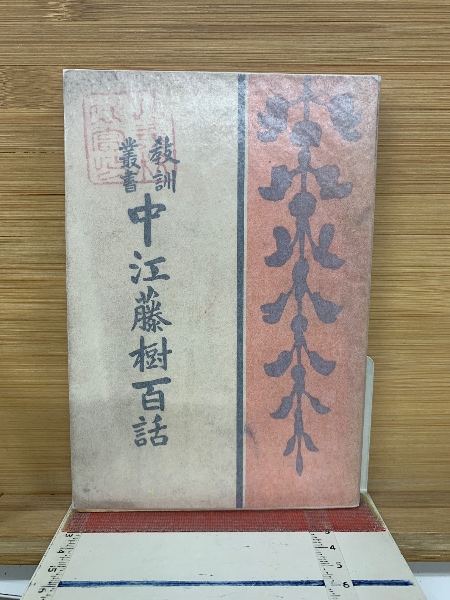 教訓
叢書
中江藤樹百話